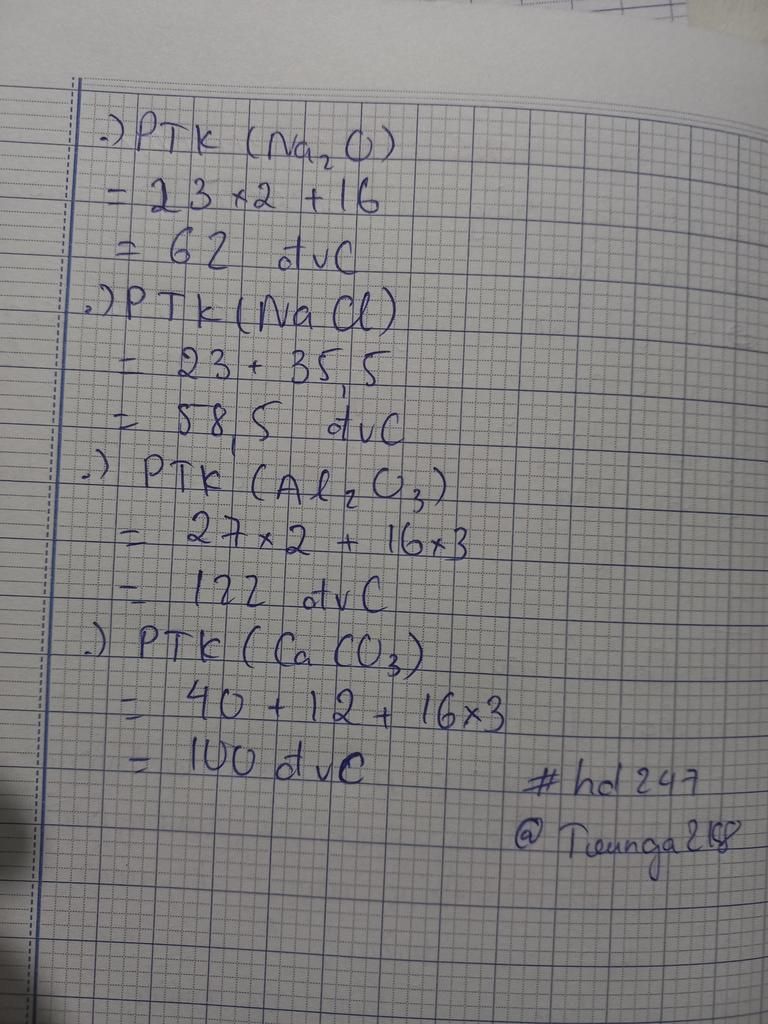 .) PTK (Na₂O)
= 23 × 2 + 16
= 62 đvC
.) PTK (NaCl)
= 23 + 35,5
= 58,5 đvC
.) PTK (Al₂O₃)
= 27 × 2 + 16 × 3
= 122 đvC
.) PTK (CaCO₃)
= 40 + 12 + 16 × 3
= 100 đvC
# hd 247